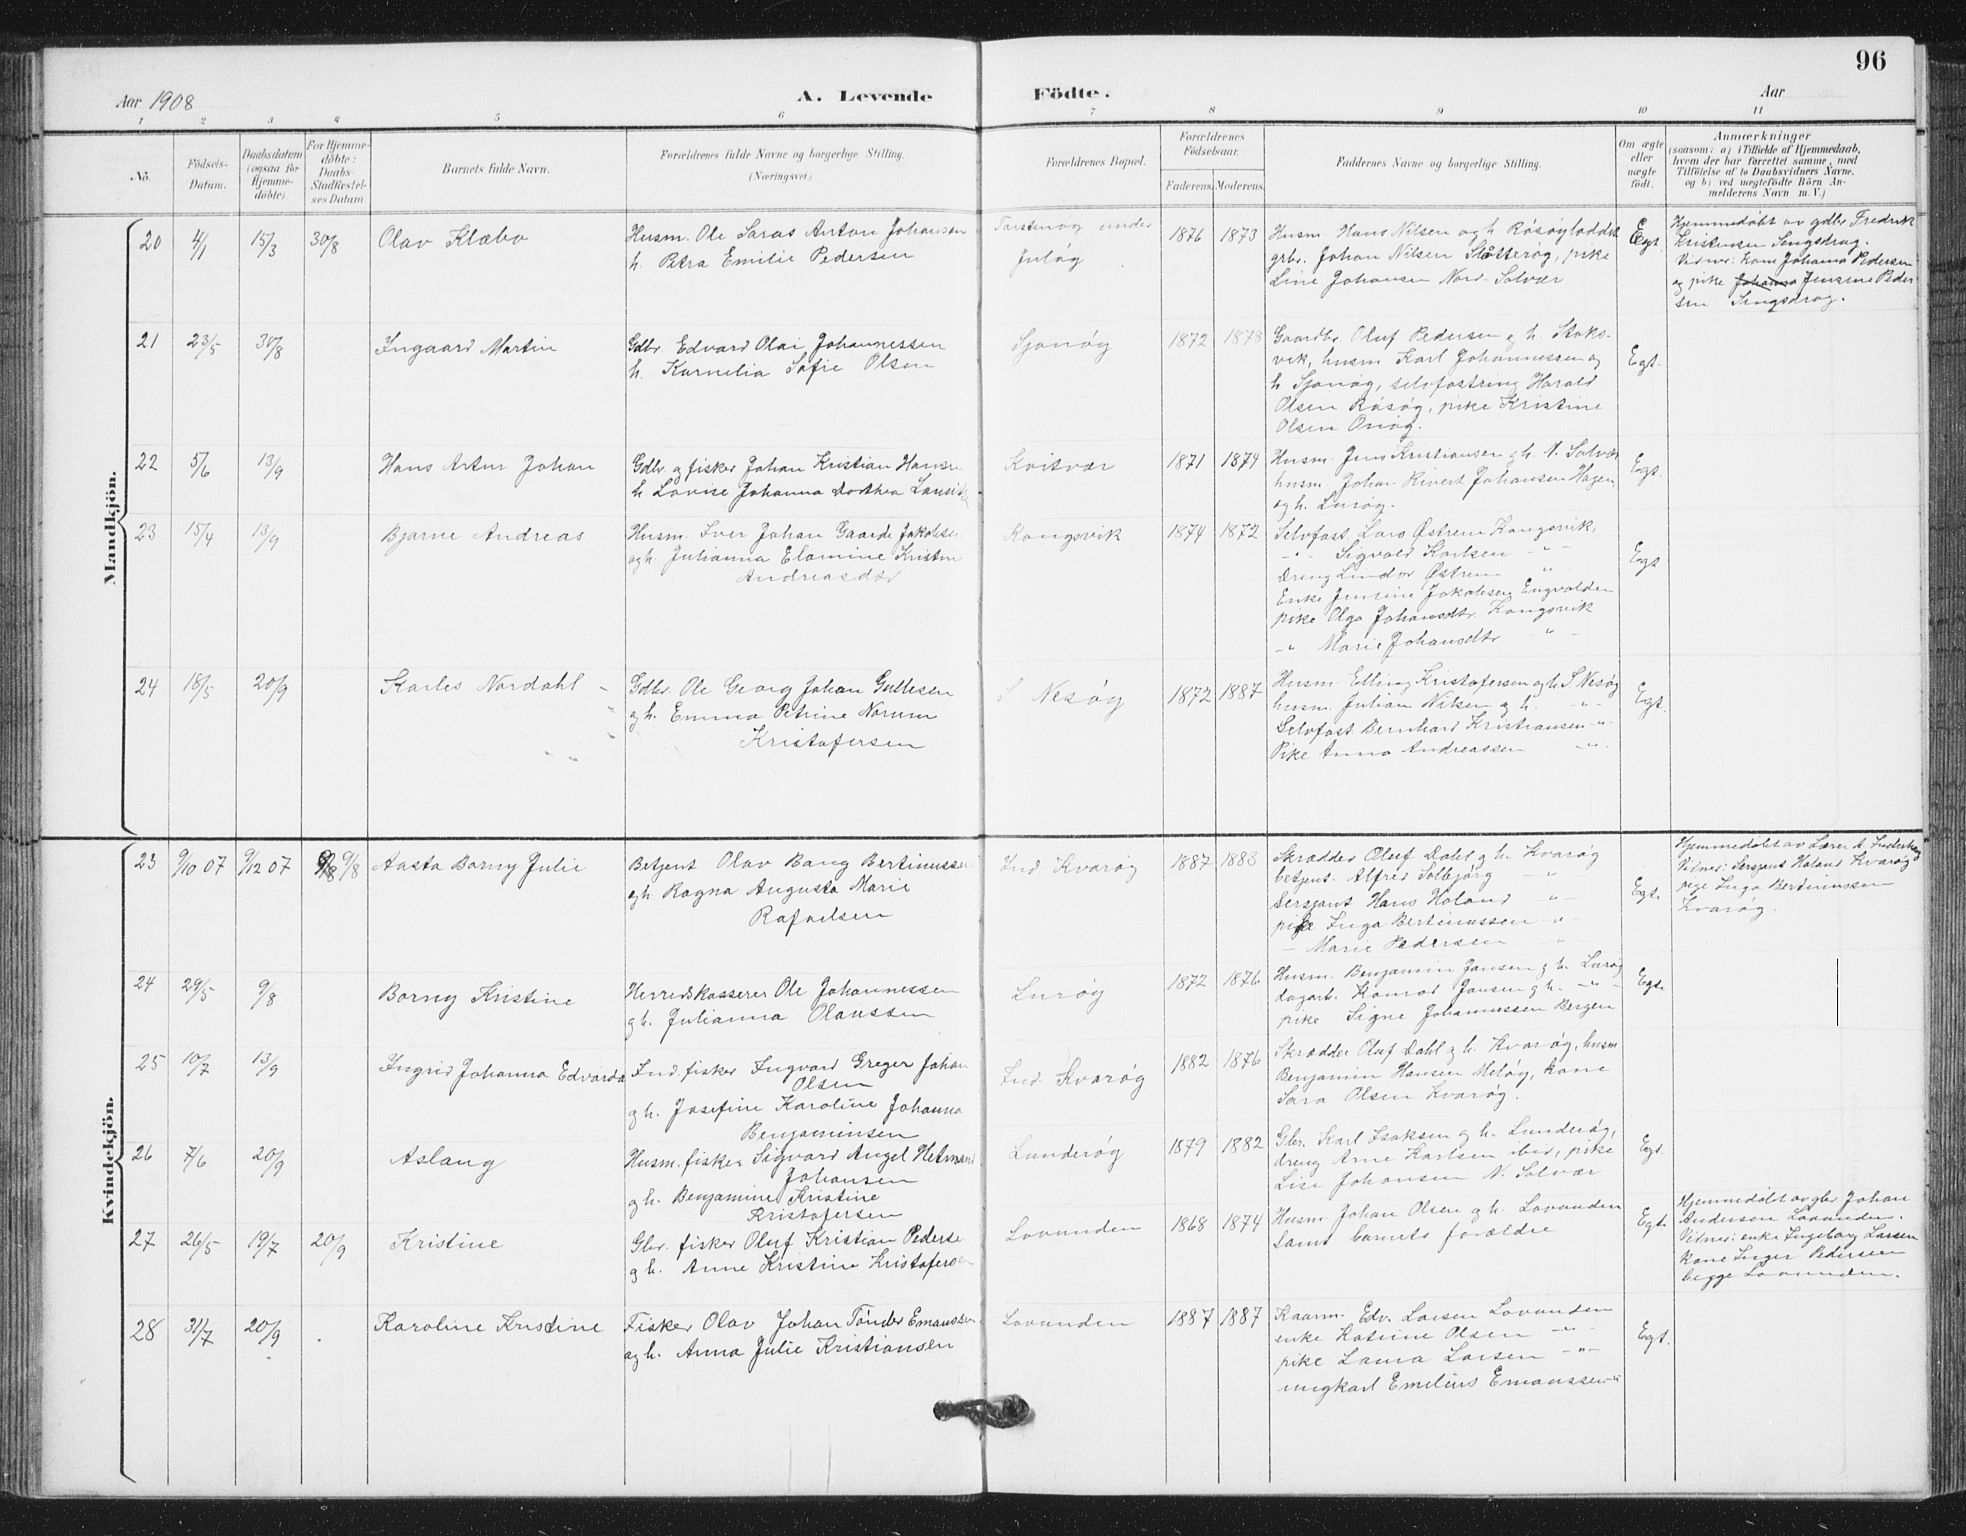 96
Aar 1908
A. Levende
Födte.
Aar
1 2 3 4 5 6 7 8 9 10 11
No.
Födsels-
Datum.
Daabsdatum
(ogsaa for
Hjemme-
döbte).
For Hjemme-
döbte:
Daabs-
Stadfæstel-
ses Datum
Barnets fulde Navn.
Forældrenes fulde Navne og borgerlige Stilling.
(Næringsvei.)
Forældrenes Bopæl.
Forældrenes
Födselsaar.
Faderens. Moderens.
Faddernes Navne og borgerlige Stilling.
Om ægte
eller
uægte
født.
Anmærkninger
(saasom: a) i Tilfælde af Hjemmedaab,
hvem der har forrettet samme, med
Tilföielse af to Daabsvidners Navne,
og b) ved uægtefödte Börn An-
melderens Navn m. V.)
Mandkjön.
20 4/1 15/3 30/8 Olav Klæbo
Husm. Ole Saras Anton Johansen
h. Petra Emilie Pedersen
under
1876 1873
Husm. Hans Nilsen og h. Råsøyloddet
grbr. Johan Nilsen Slåtterøy, pike
Line Johansen Nord-Solvær
Egt.
Hjemmedøbt av gdbr. Fredrik
Kristensen Sengsdrag.
Vidner: kone Johanna Pedersen
og pike Johanna Jensine Peder
sen Sengsdrag.
21 23/5 30/8 Ingaard Martin
Gdbr. Edvard Olai Johannessen
h. Kornelia Sofie Olsen
Sjonøy
1872 1878
Gaardbr. Oluf Pedersen g h. Stoks-
vik, husm. Karl Johannessen og
h Sjonøy, selvfostring Harald
Olsen Råsøy, pike Kristine
Olsen Onøy.
Egt.
22 5/6 13/9 Hans Artur Johan
Gdbr. g fisker Johan Kristian Hansen
h. Lovise Johanna Dorthea
Kvitvær
1871 1874
Husm. Jens Kristiansen g h. N. Solvær
husm. Johan Rivert Johansen Hagen
og h. Lurøy.
Egt.
23 15/4 13/9 Bjarne Andreas
Husm. Iver Johan Gaarde Jakobsen
og h. Julianna Elamine Kristin
Andreasdtr
Kongsvik
1874 1872
Selvfost. Lars Østrem Kongsvik,
-"- Sigvald Karlsen -"-
Dreng Lindor Østrem "
Enke Jensine Jakobsen Engvolden
pike Olga Johansdtr. Kongsvik
-"- Marie Johansdtr -"-
Egt
24 18/5 20/9 Karles Nordahl
Gdbr. Ole Georg Johan Gullesen
og h. Emma Petrine Norum
Kristofersen
S. Nesøy
1872 1887
Husm. Elling Kristofersen og h. S. Nesøy
husm. Julian Nilsen og h. -"-
Selvfost. Bernhard Kristiansen -"-
Pike Anna Andreassen -"-
Egt.
Kvindekjön.
23 9/10 07 9/12 07 9/8 Aasta Borny Julie
Betjent Olav Bang Bertinussen
og h. Ragna Augusta Marie
Rafaelsen
Ind. Kvarøy
1887 1883
Skrædder Oluf Dahl g h. Kvarøy
betjent. Alfred Solbjørg -"-
Sersjant Hans Holand -"-
pike Inga Bertinussen -"-
- Marie Pedersen -"-
Egt.
Hjemmedøbt av Lærer
Vitner: Sersjant Holand Kvarøy
pige Inga Bertinussen
Kvarøy.
24 29/5 9/8 Borny Kristine
Herredskasserer Ole Johannessen
g h. Julianna Olaussen
Lurøy
1872 1876
Husm. Benjamin Jansen g h. Lurøy
dagarb. Konrad Jansen g h. -"-
pike Signe Johannessen Bergen
Egt.
25 10/7 13/9 Ingrid Johanna Edvarda
Ind. fisker Ingvard Greger Johan
Olsen
g h. Josefine Karoline Johanna
Benjaminsen
Ind. Kvarøy
1882 1876
Skrædder Oluf Dahl g h. Kvarøy, husm
Benjamin Hansen Meløy, kone
Sara Olsen Kvarøy.
26 7/6 20/9 Aslaug
Husm. fisker Sigvard Angel Hetmand
Johansen
og h. Benjamine Kristine
Kristofersen
Lunderøy
1879 1882
Gbr. Karl Isaksen g h. Lunderøy,
dreng Arne Karlsen ibid, pike
Lise Johansen N. Solvær
Egt.
27 26/5 19/7 20/9 Kristine
Gbr. fisker Oluf Kristian Pederse
og h. Anne Kristine Kristofersen
Lovunden
1868 1874
Husm. Johan Olsen g h. Lovunden
samt barnets forældre
Egt.
Hjemmedøbt av gbr. Johan
Andersen Lovunden.
Vitner: enke Ingeborg Larsen
kone Inger Pedersen
begge Lovunden.
28 31/7 20/9 Karoline Kristine
Fisker Olav Johan Tønder Emaussen
og h. Anna Julie Kristiansen
Lovunden
1887 1887
Kaarm. Edv. Larsen Lovunden
enke Katrine Olsen -"-
pike Laura Larsen -"-
ungkarl Emelius Emaussen -"-
Egt.